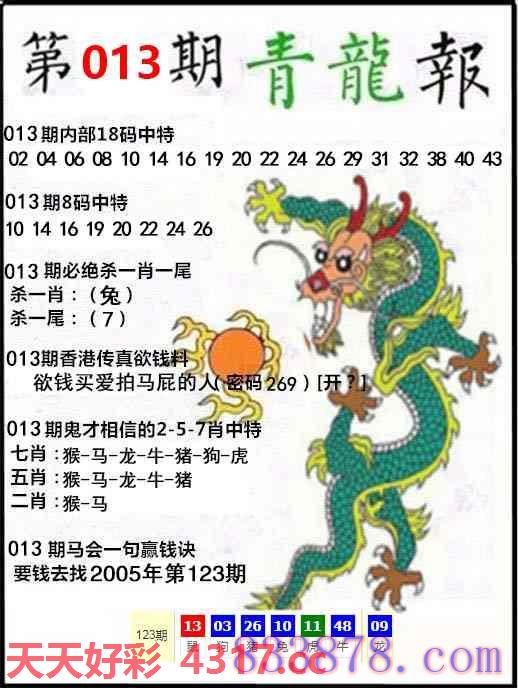 第013期 青龍報
013期内部18码中特
02 04 06 08 10 14 16 19 20 22 24 26 29 31 32 38 40 43
013期8码中特
10 14 16 19 20 22 24 26
013 期必绝杀一肖一尾
杀一肖：（兔）
杀一尾：（7）
013期香港传真欲钱料
欲钱买爱拍马屁的人(密码269)[开？]
013期鬼才相信的2-5-7肖中特
七肖：猴-马-龙-牛-猪-狗-虎
五肖：猴-马-龙-牛-猪
二肖：猴-马
013 期马会一句赢钱诀
要钱去找2005年第123期
123期 13 03 26 10 11 48 09
鼠 狗 猪 兔 虎 牛 龙
天天好彩 4317.cc
833878.com